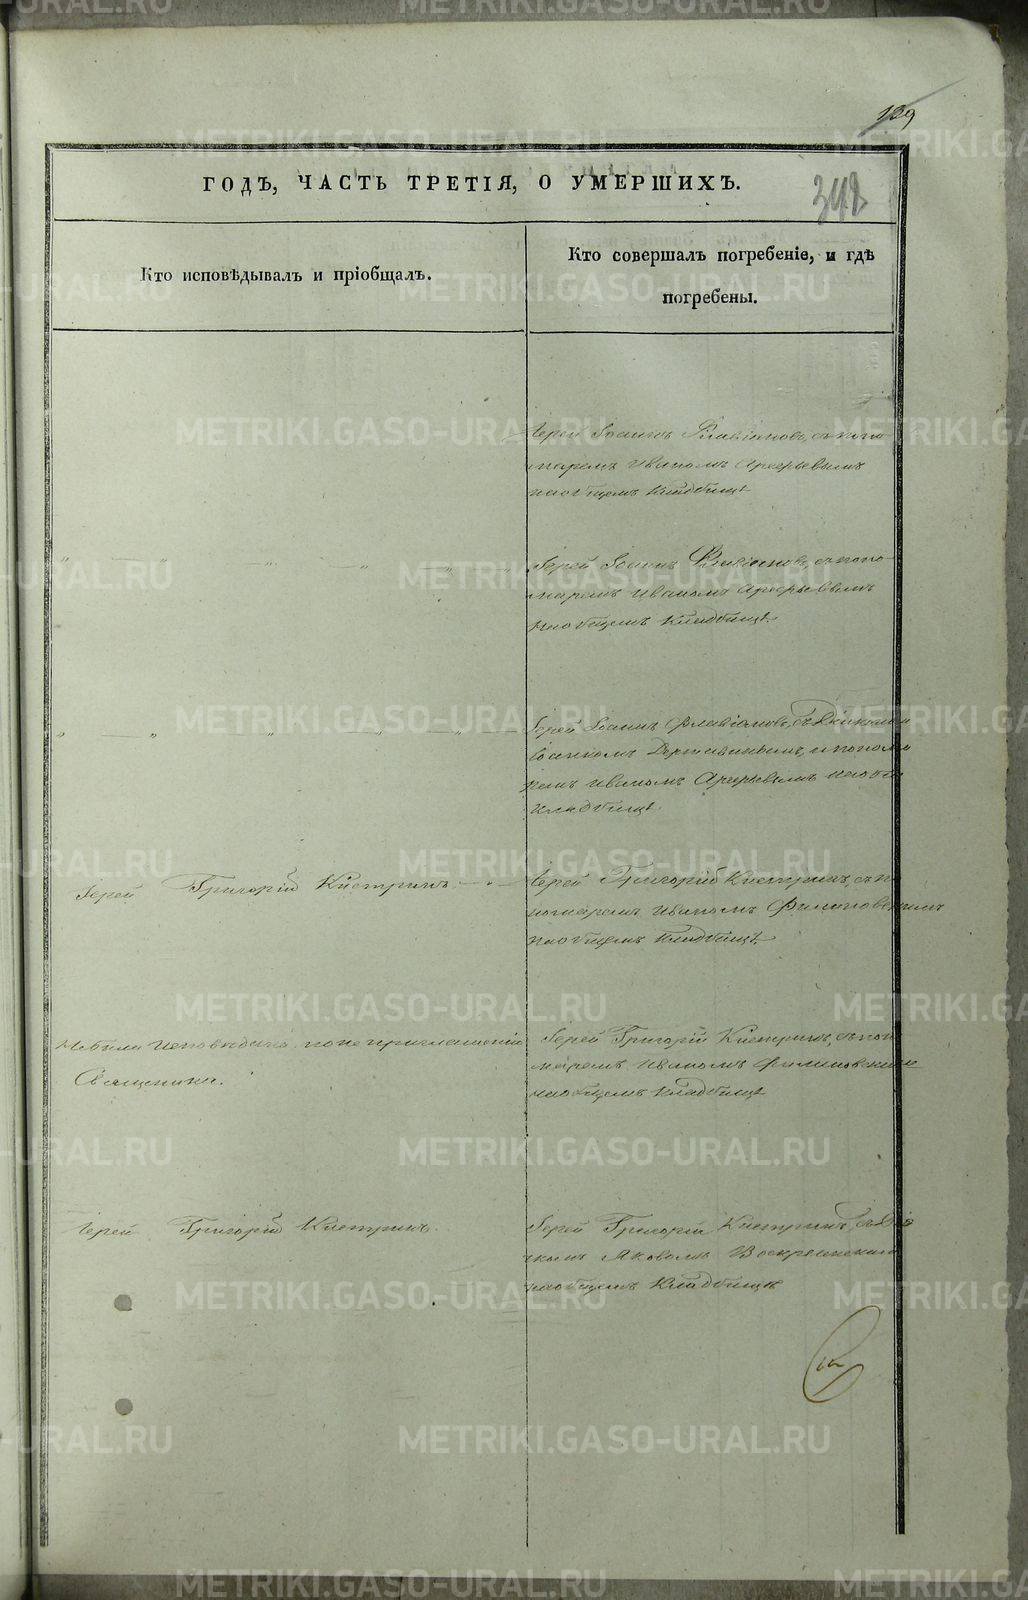 139
342
ГОДЪ, ЧАСТЬ ТРЕТІЯ, О УМЕРШИХЪ.
Кто исповѣдывалъ и пріобщалъ.
Кто совершалъ погребеніе, и гдѣ
погребены.
Іерей Іоаннъ Флавіановъ, съ поно
маремъ Иваномъ Арефьевымъ
на общемъ кладбищѣ
Іерей Іоаннъ Флавіановъ, съ поно
маремъ Иваномъ Арефьевымъ
на общемъ кладбищѣ.
Іерей Іоаннъ Флавіановъ, съ Діакономъ
Іоанномъ Державинымъ, и понома
ремъ Иваномъ Арефьевымъ на общ
кладбищѣ
Іерей Григорій Кыстринъ
Іерей Григорій Кыстринъ, съ п
номаремъ Иваномъ Филиповскимъ
на общемъ кладбищѣ
Небыли исповѣданы по не приглашенію
Священника.
Іерей Григорій Кыстринъ, съ поно
маремъ Иваномъ Филиповскимъ
на общемъ кладбищѣ
Іерей Григорій Кыстринъ.
Іерей Григорій Кыстринъ, съ Дьяч
комъ Яковомъ Воскресенскимъ
на общемъ кладбищѣ
METRIKI.GASO-URAL.RU